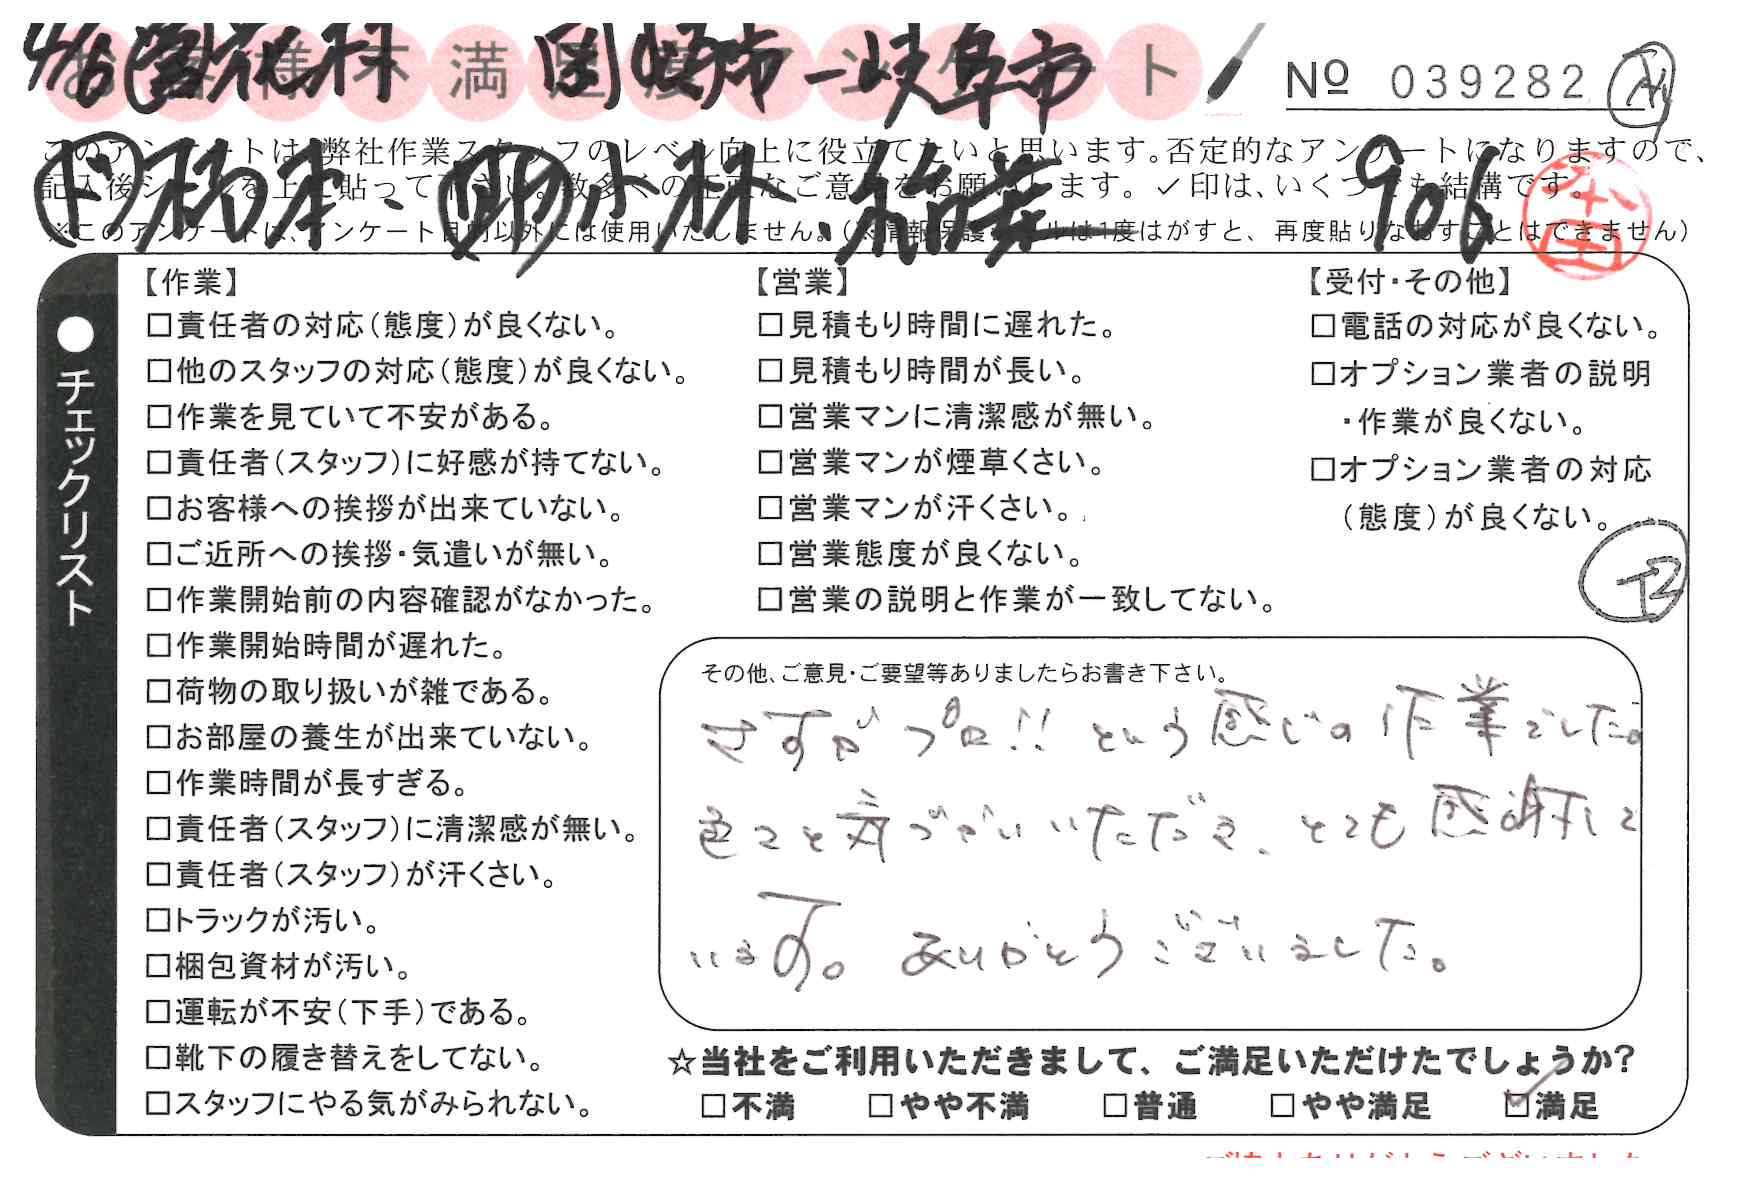 お客様不満足度アンケート
4/6 営 花村 関市-岐阜市
№ 039282
このアンケートは、弊社作業スタッフのレベル向上に役立てたいと思います。否定的なアンケートになりますので、
記入後シールを上に貼って下さい。数多くの正直なご意見をお願いします。✓印は、いくつでも結構です。
※このアンケートは、アンケート目的以外には使用いたしません。(※情報保護シールは1度はがすと、再度貼りなおすことはできません)
ド 橋本、助 小林、
906
●チェックリスト
【作業】
□責任者の対応(態度)が良くない。
□他のスタッフの対応(態度)が良くない。
□作業を見ていて不安がある。
□責任者(スタッフ)に好感が持てない。
□お客様への挨拶が出来ていない。
□ご近所への挨拶・気遣いが無い。
□作業開始前の内容確認がなかった。
□作業開始時間が遅れた。
□荷物の取り扱いが雑である。
□お部屋の養生が出来ていない。
□作業時間が長すぎる。
□責任者(スタッフ)に清潔感が無い。
□責任者(スタッフ)が汗くさい。
□トラックが汚い。
□梱包資材が汚い。
□運転が不安(下手)である。
□靴下の履き替えをしてない。
□スタッフにやる気がみられない。
【営業】
□見積もり時間に遅れた。
□見積もり時間が長い。
□営業マンに清潔感が無い。
□営業マンが煙草くさい。
□営業マンが汗くさい。
□営業態度が良くない。
□営業の説明と作業が一致してない。
【受付・その他】
□電話の対応が良くない。
□オプション業者の説明
・作業が良くない。
□オプション業者の対応
(態度)が良くない。
その他、ご意見・ご要望等ありましたらお書き下さい。
さすがプロ!! という感じの作業でした。
色々と気づかいいただき、とても感謝して
います。ありがとうございました。
☆当社をご利用いただきまして、ご満足いただけたでしょうか?
□不満 □やや不満 □普通 □やや満足 ☑満足